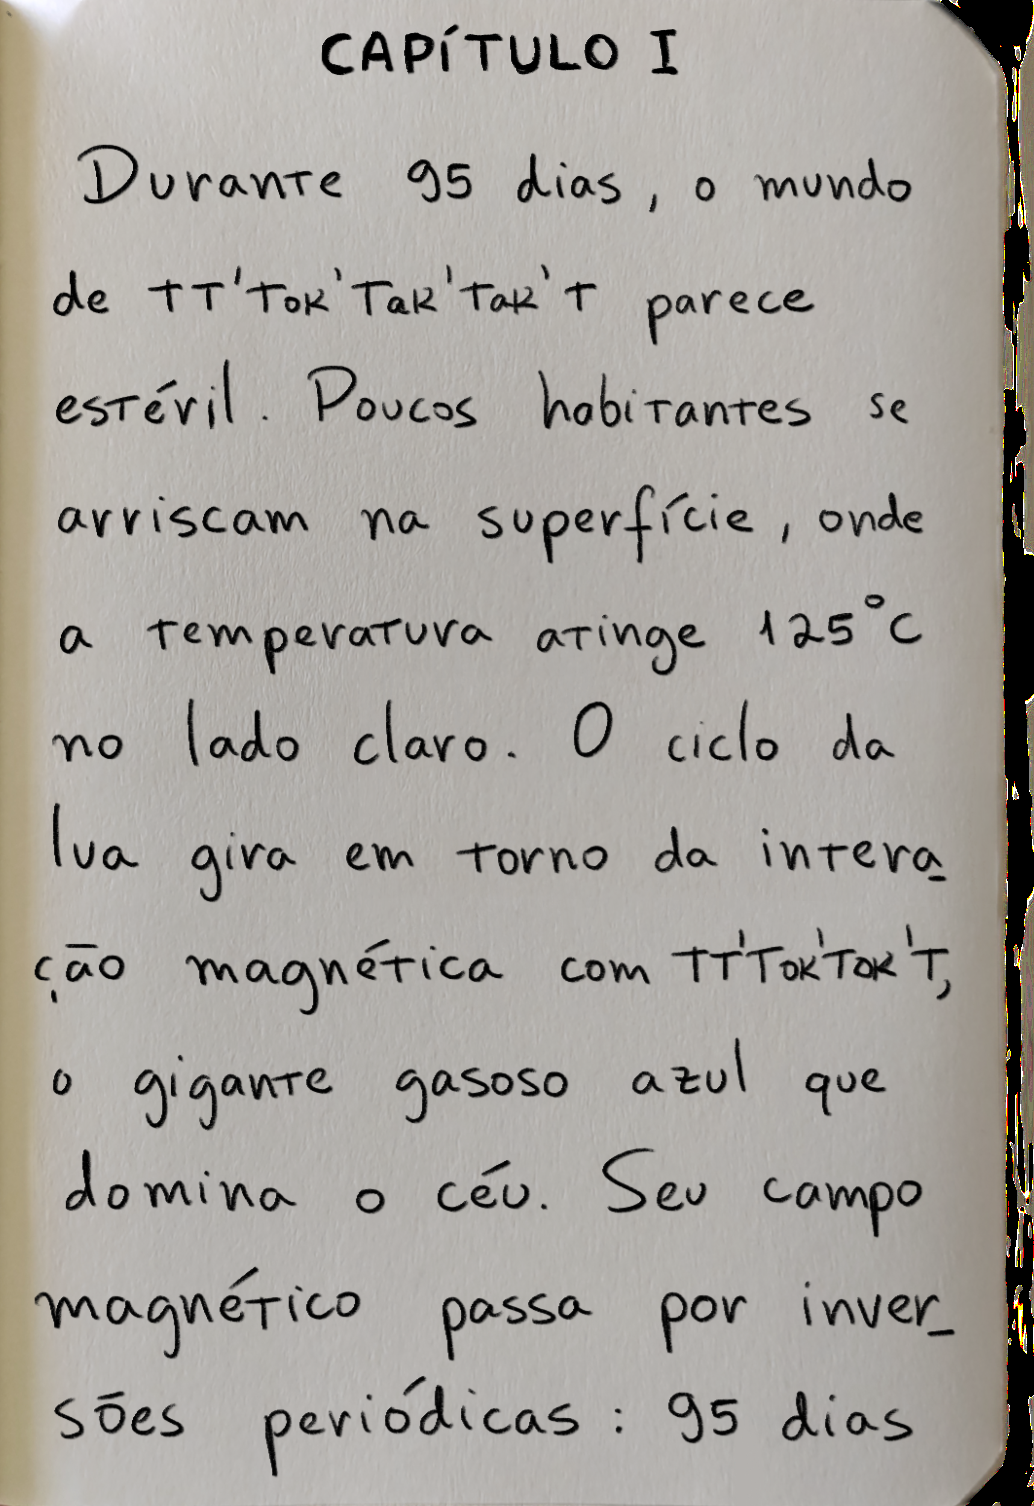 CAPÍTULO I
Durante 95 dias, o mundo
de TT'Tok'Tak'Tak'T parece
estéril. Poucos habitantes se
arriscam na superfície, onde
a temperatura atinge 125°C
no lado claro. O ciclo da
lua gira em torno da intera-
ção magnética com TT'Tok'Tok'T,
o gigante gasoso azul que
domina o céu. Seu campo
magnético passa por inver-
sões periódicas: 95 dias